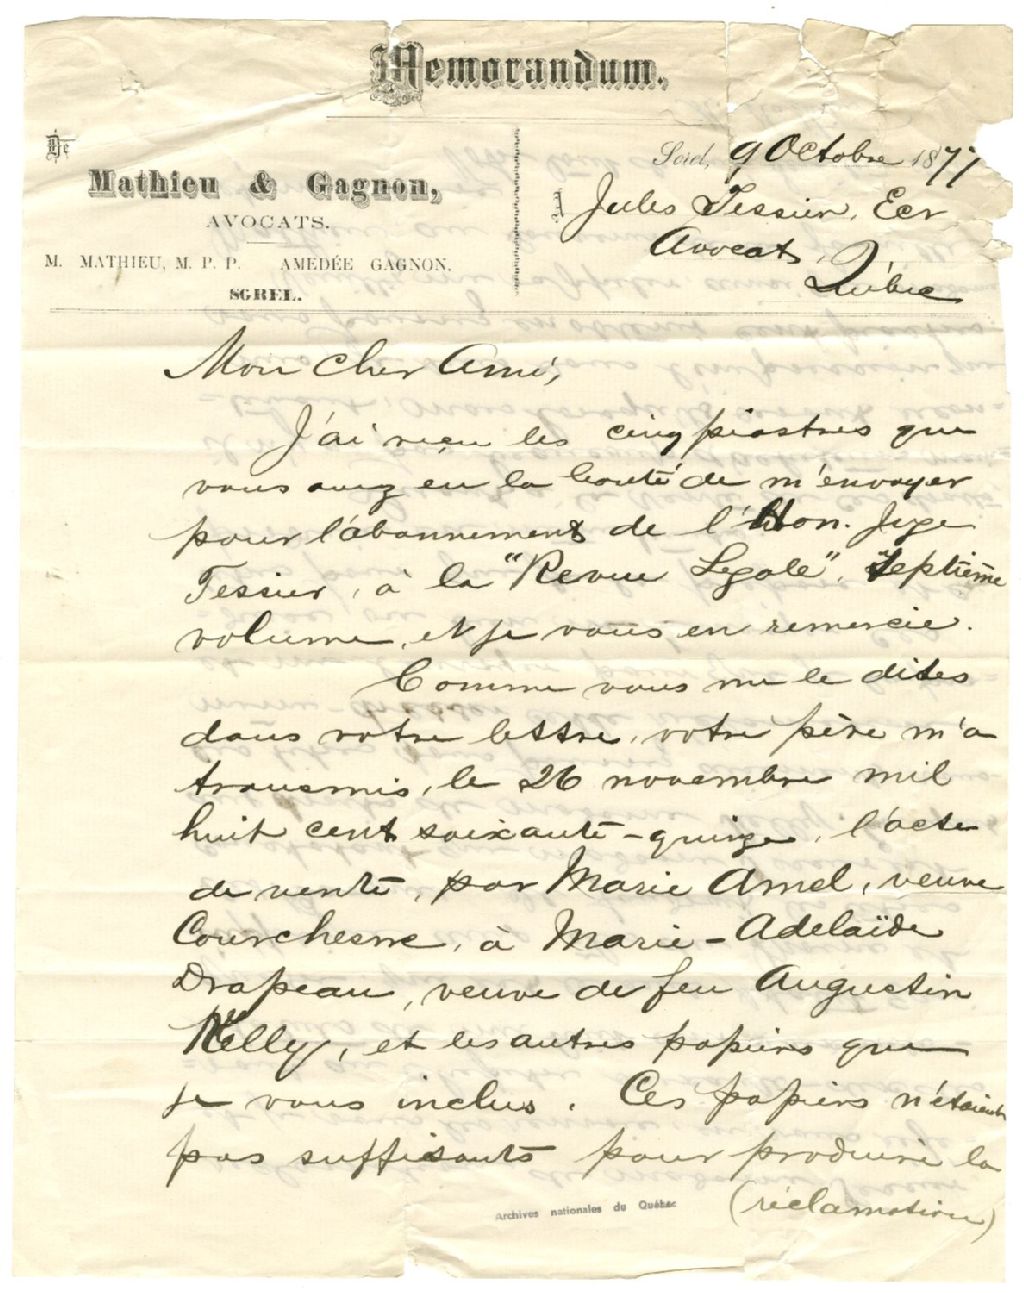 Memorandum.
De
Mathieu & Gagnon,
AVOCATS.
M. MATHIEU, M. P. P. AMEDÉE GAGNON.
SOREL.
Sorel, 9 Octobre 1877
Jules Tessier, Ecr
Avocat,
Québec
Mon cher Ami,
J'ai reçu les cinq piastres que
vous avez eu la bonté de m'envoyer
pour l'abonnement de l'Hon. Juge
Tessier, à la "Revue Legale", Septième
volume, et je vous en remercie.
Comme vous me le dites
dans votre lettre, votre père m'a
transmis, le 26 novembre mil
huit cent soixante-quinze, l'acte
de vente, par Marie Amel, veuve
Courchesne, à Marie-Adelaïde
Drapeau, veuve de feu Augustin
Kelly, et les autres papiers que
je vous inclus. Ces papiers n'étaient
pas suffisants pour produire la
(réclamation)
Archives nationales du Québec